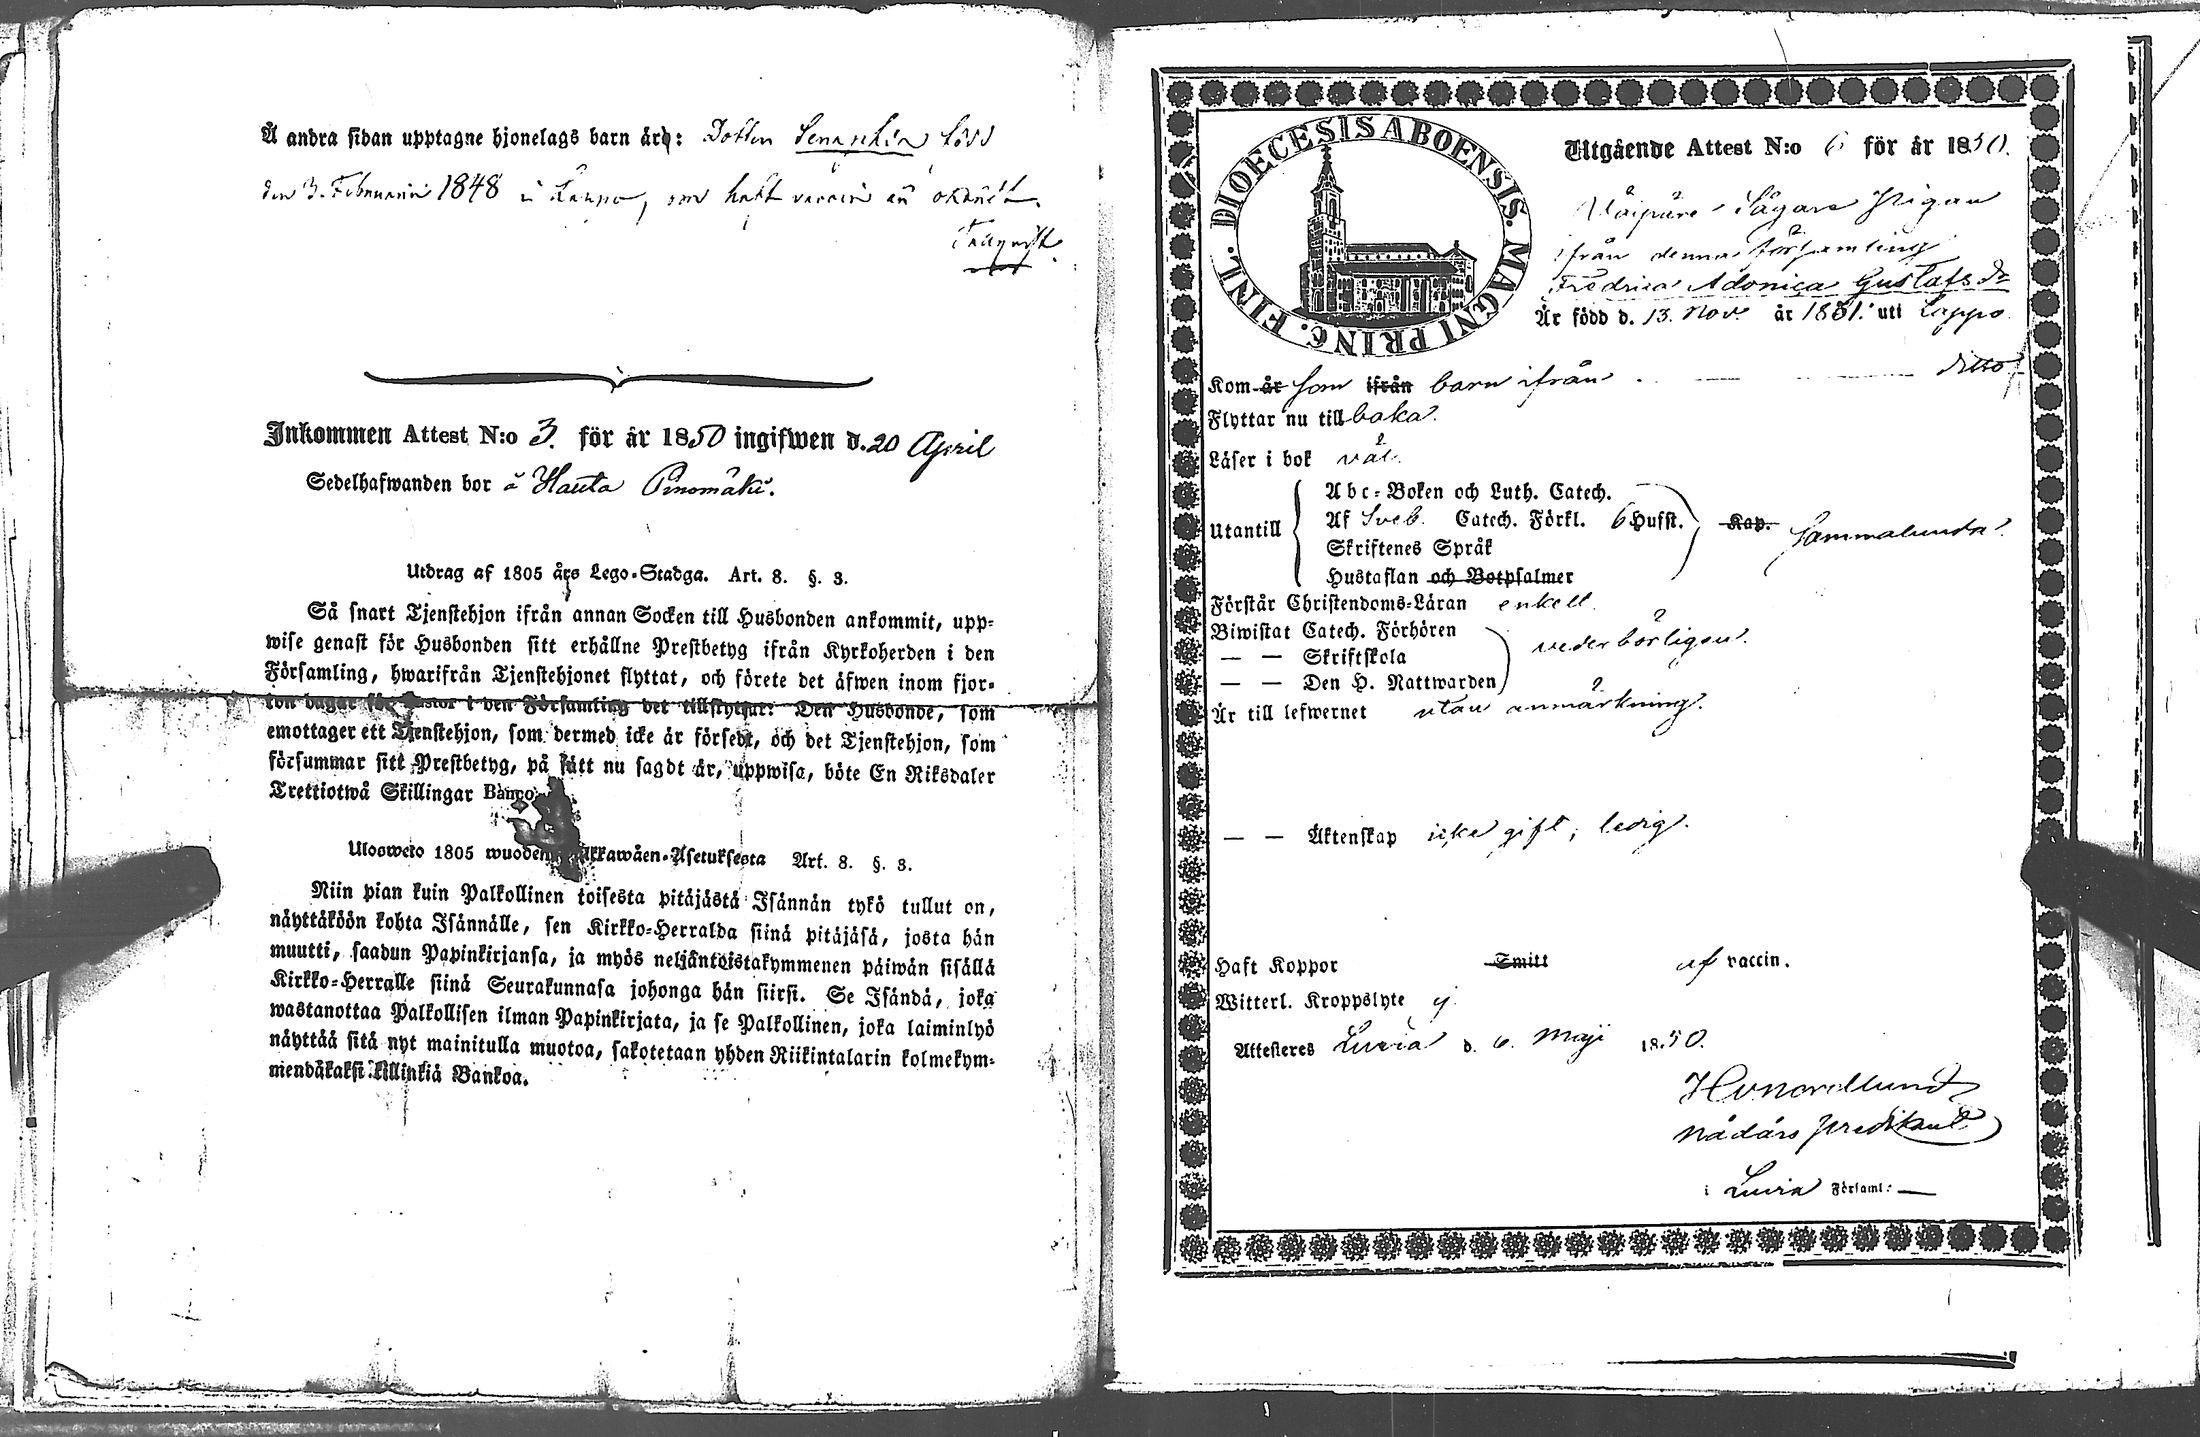 Å andra sidan upptagne hjonelags barn äro: Dottern född
den 3. Februarii 1848 i som haft vaccin är okändt.
Inkommen Attest N:o 3. för år 1850 ingifwen d. 20 April
Sedelhafwanden bor å Hauta Pinomäki.
Utdrag af 1805 års Lego-Stadga. Art. 8. §. 3.
Så snart Tjenstehjon ifrån annan Socken till Husbonden ankommit, upp-
wise genast för Husbonden sitt erhållne Prestbetyg ifrån Kyrkoherden i den
Församling, hwarifrån Tjenstehjonet flyttat, och förete det äfwen inom fjor-
ton dagar för Pastor i den Församling det tillflyttat: Den Husbonde, som
emottager ett Tjenstehjon, som dermed icke är försedt, och det Tjenstehjon, som
försummar sitt Prestbetyg, på sätt nu sagdt är, uppwisa, böte En Riksdaler
Trettiotwå Skillingar Banco.
Ulosweto 1805 wuoden Art. 8. §. 3.
Niin pian kuin Palkollinen toisesta pitäjästä Isännän tykö tullut on,
näyttäköön kohta Isännälle, sen Kirkko-Herralda siinä pitäjäsä, josta hän
muutti, saadun Papinkirjansa, ja myös neljäntoistakymmenen päiwän sisällä
Kirkko-Herralle siinä Seurakunnasa johonga hän siirsi. Se Isändä, joka
wastanottaa Palkollisen ilman Papinkirjata, ja se Palkollinen, joka laiminlyö
näyttää sitä nyt mainitulla muotoa, sakotetaan yhden Riikintalarin kolmekym-
mendäkaksi killinkiä Bankoa.
DIOECESIS ABOENSIS. MAGNI PRINC. FINL.
Utgående Attest N:o 6 för år 1850.
Sågars Pigan
ifrån denna församling
Fredrica Adonica Gustafs dr
Är född d. 13. Nov. år 1831. uti Lappo.
Kom år som ifrån barn ifrån ditto
Flyttar nu till baka.
Läser i bok väl.
Utantill
Abc-Boken och Luth. Catech.
Af Sveb. Catech. Förkl. 6 Hufst. Kap. Sammalunda.
Skriftenes Språk
Hustaflan och Botpsalmer
Förstår Christendoms-Läran enkelt.
Biwistat Catech. Förhören
— — Skriftskola vederbörligen.
— — Den H. Nattwarden
Är till lefwernet utan anmärkning.
— — Äktenskap icke gift, ledig.
Haft Koppor Smitt af vaccin.
Witterl. Kroppslyte ej
Attesteres Luvia d. 6. Maji 1850.
Nådårs predikant
i Luvia Församl: —